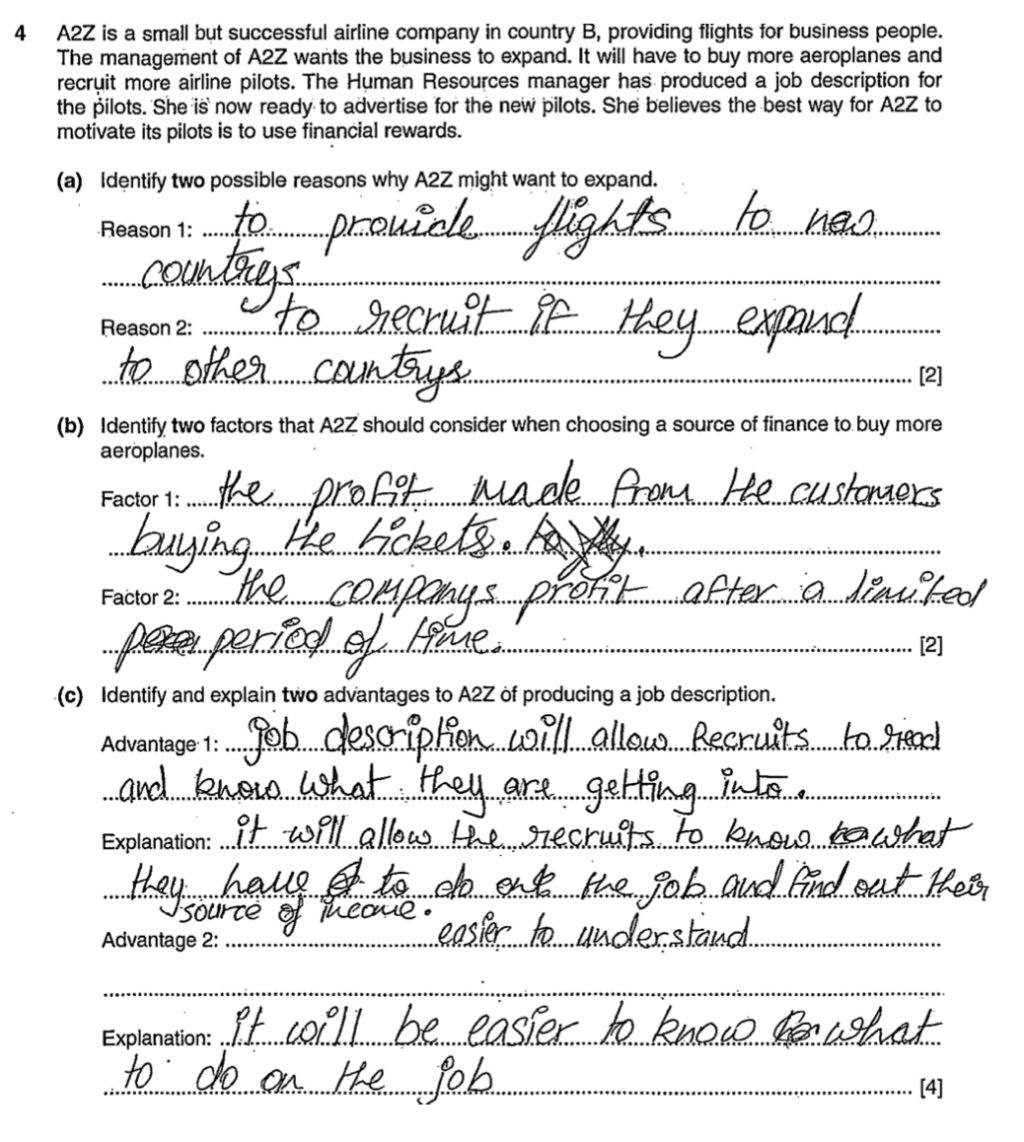 4 A2Z is a small but successful airline company in country B, providing flights for business people.
The management of A2Z wants the business to expand. It will have to buy more aeroplanes and
recruit more airline pilots. The Human Resources manager has produced a job description for
the pilots. She is now ready to advertise for the new pilots. She believes the best way for A2Z to
motivate its pilots is to use financial rewards.
(a) Identify two possible reasons why A2Z might want to expand.
Reason 1: to provide flights to new
countrys
Reason 2: to recruit if they expand
to other countrys [2]
(b) Identify two factors that A2Z should consider when choosing a source of finance to buy more
aeroplanes.
Factor 1: the profit made from the customers
buying the tickets.
Factor 2: the companys profit after a limited
period of time. [2]
(c) Identify and explain two advantages to A2Z of producing a job description.
Advantage 1: job description will allow Recruits to read
and know what they are getting into.
Explanation: it will allow the recruits to know what
they have to do on the job and find out their
source of income.
Advantage 2: easier to understand
Explanation: it will be easier to know what
to do on the job [4]